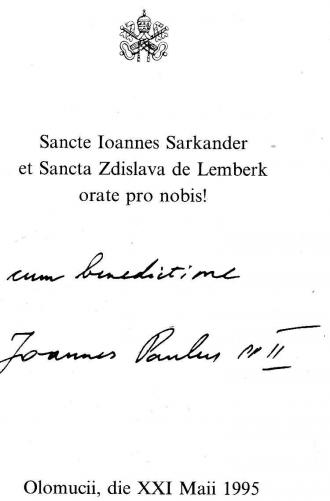 Sancte Ioannes Sarkander
et Sancta Zdislava de Lemberk
orate pro nobis!
cum benedictione
Joannes Paulus pp II
Olomucii, die XXI Maii 1995